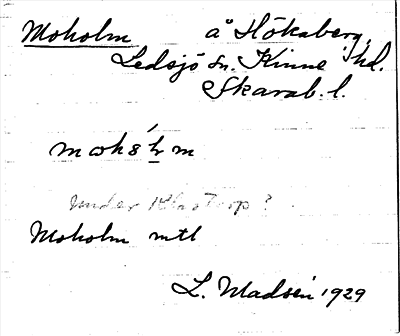 Moholm å Hökaberg,
Ledsjö sn. Kinne hd.
Skarab. l.
under ?
Moholm mtl
L. Madsén 1929